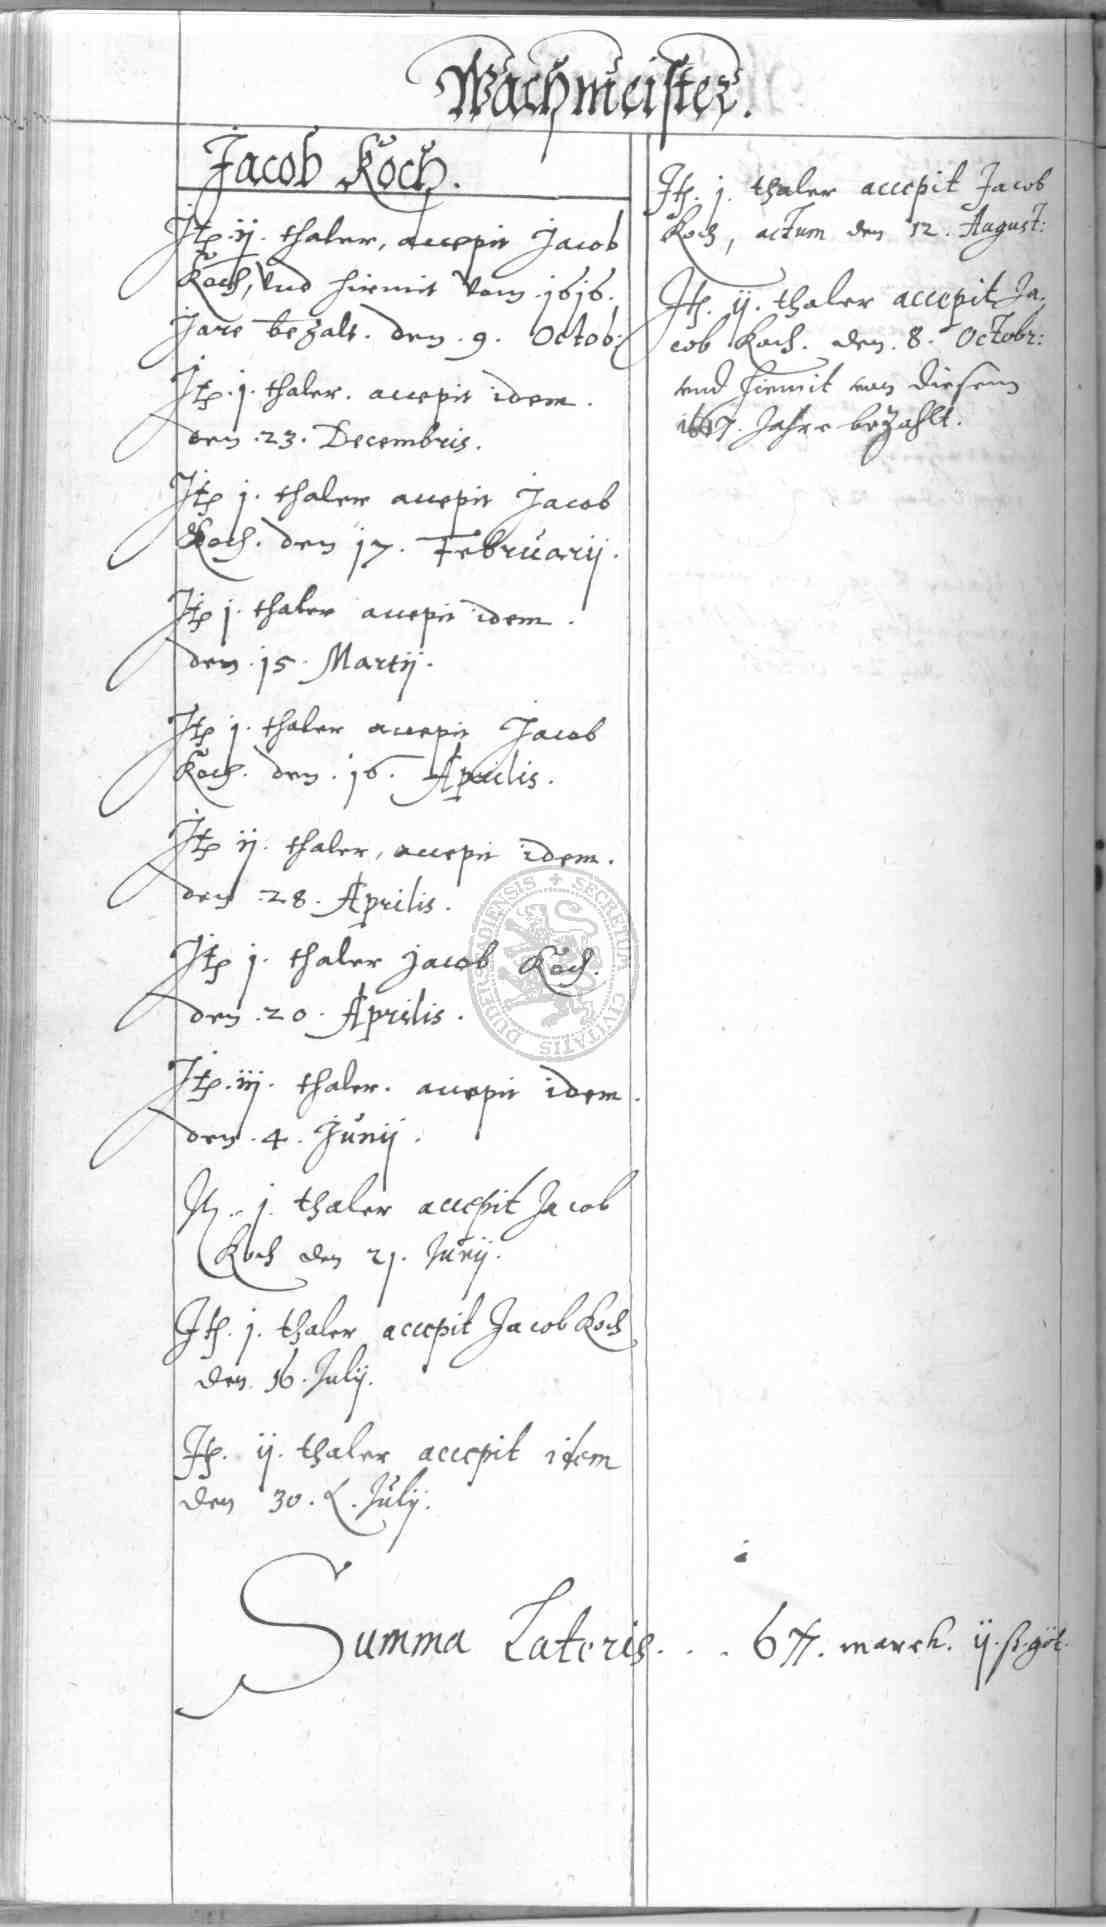 Wachmeister.
Jacob Koch.
Itp. ij. thaler, accepit Jacob
Koch, und hiermit vom 1616.
Jare bezalt. den 9. Octob:
Itp. j. thaler. accepit idem.
den 23. Decembris.
Itp j. thaler accepit Jacob
Koch. den 17. Februarij.
Itp j. thaler accepit idem.
den 15. Martij.
Itp j. thaler accepit Jacob
Koch. den 16. Aprilis.
Itp ij. thaler, accepit idem.
den 28. Aprilis.
Itp j. thaler Jacob Koch.
den 20. Aprilis.
Itp. iij. thaler. accepit idem.
den 4. Junij.
j. thaler accepit Jacob
Koch den 21. Junij.
Itp. j. thaler accepit Jacob Koch
den 16. Julij.
Itp. ij. thaler accepit item
den 30. Julij.
Itp. j. thaler accepit Jacob
Koch, actum den 12. August:
Itp. ij. thaler accepit Ja-
cob Koch. den 8. Octobr:
und hiermit von diesem
1617. Jahre bezahlt.
Summa Lateris . . . march. ij. ß. göt.
SECRETUM CIVITATIS DUDERSTADIENSIS